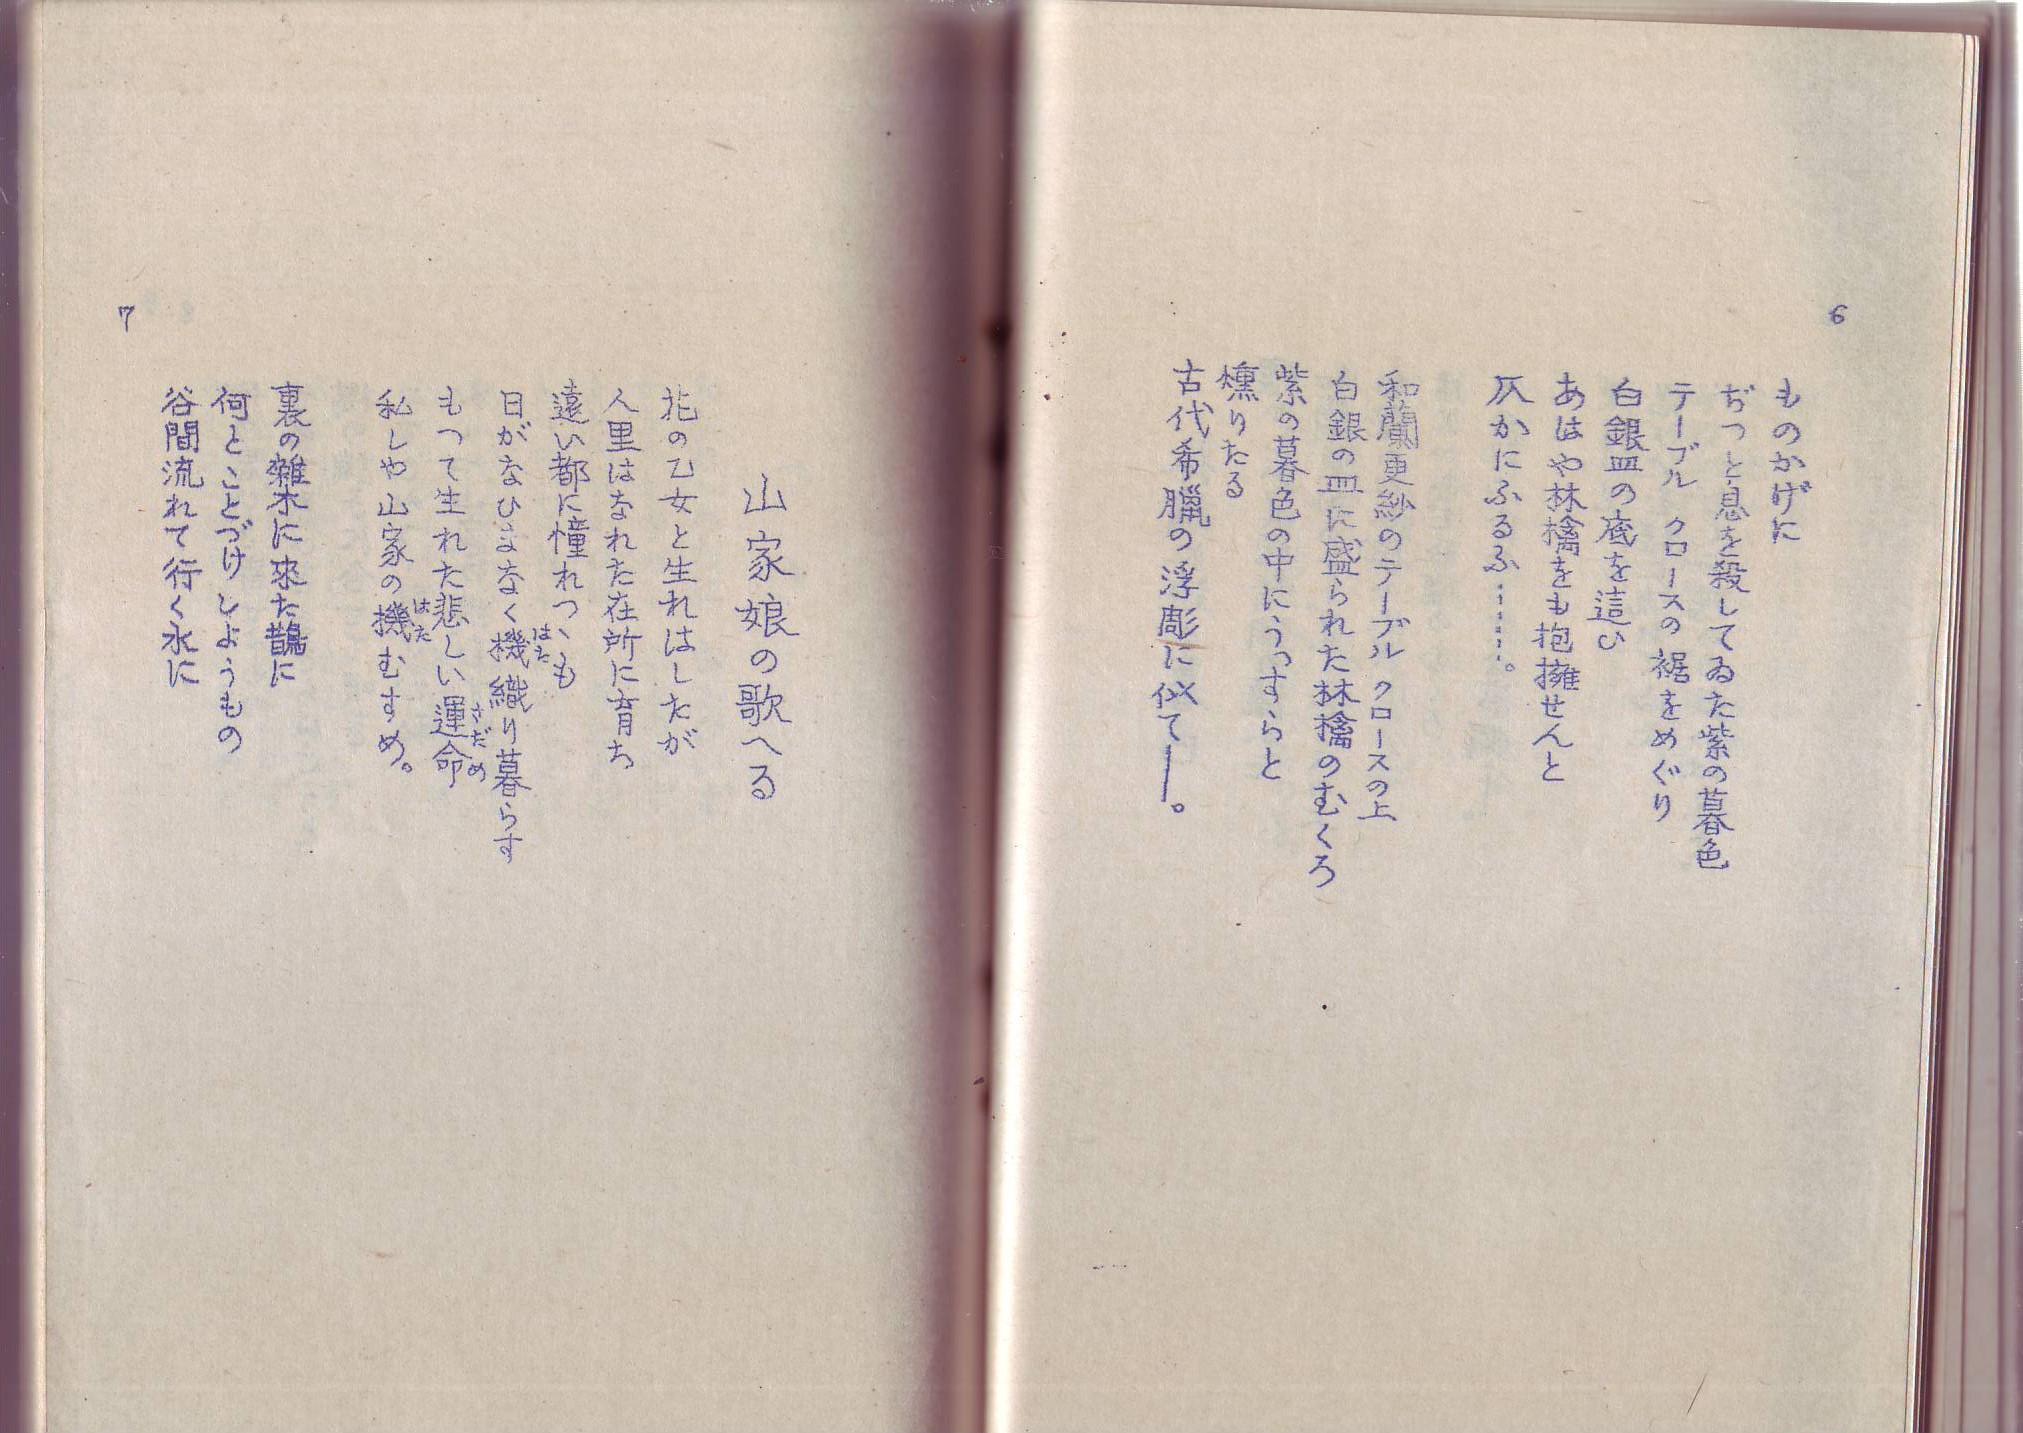 6
ものかげに
ぢつと息を殺してゐた紫の暮色
テーブル クロースの裾をめぐり
白銀皿の底を這ひ
あはや林檎をも抱擁せんと
仄かにふるふ………。
和蘭更紗のテーブル クロースの上
白銀の皿に盛られた林檎のむくろ
紫の暮色の中にうつすらと
燻りたる
古代希臘の浮彫に似て――。
山家娘の歌へる
北の乙女と生れはしたが
人里はなれた在所に育ち
遠い都に憧れつゝも
日がなひまなく機織り暮らす
はた
もつて生れた悲しい運命
さだめ
私しや山家の機むすめ。
はた
裏の雑木に來た鵲に
何とことづけしようもの
谷間流れて行く水に
7